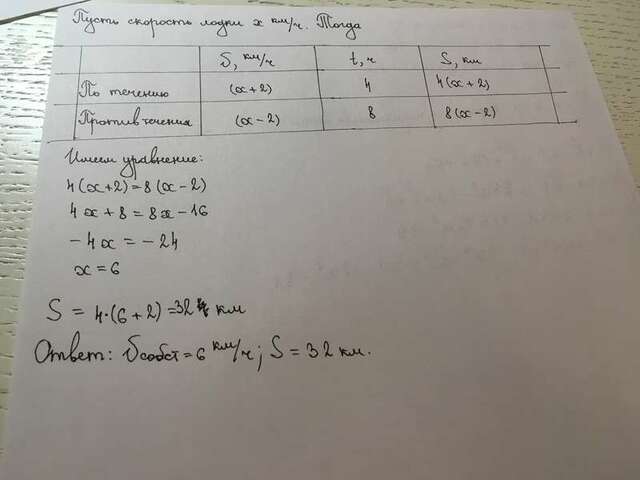 Пусть скорость лодки x км/ч. Тогда
V, км/ч t, ч S, км
По течению (x+2) 4 4(x+2)
Против течения (x-2) 8 8(x-2)
Имеем уравнение:
4(x+2)=8(x-2)
4x+8=8x-16
-4x=-24
x=6
S=4·(6+2)=32 км
Ответ: Vсобст=6 км/ч; S=32 км.